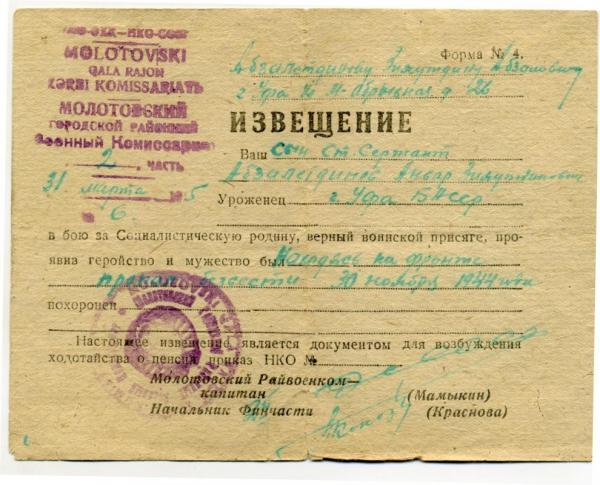 MOLOTOVSKI
QALA RAJON
KOMISSARIATЬ
МОЛОТОВСКИЙ
ГОРОДСКОЙ РАЙОННЫЙ
Военный Комиссариат
2 ЧАСТЬ
31 марта 5
6
Форма № 4.
Абзалетдинову
г. Уфа д 26
ИЗВЕЩЕНИЕ
Ваш сын Ст. Сержант
Абзалетдинов Анвар
Уроженец г. Уфа БАССР
в бою за Социалистическую родину, верный воинской присяге, про-
явив геройство и мужество был Находясь на фронте
пропал безвести 30 ноября 1944 года
похоронен
Настоящее извещение является документом для возбуждения
ходатайства о пенсии приказ НКО №
Молотовский Райвоенком—
капитан (Мамыкин)
Начальник Финчасти (Краснова)